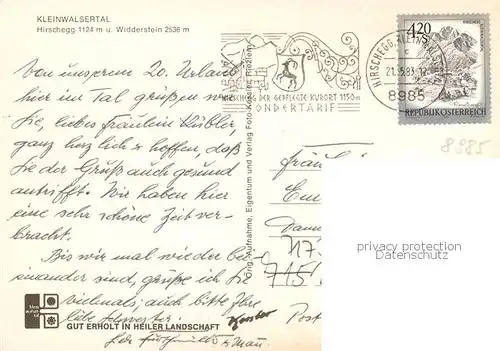 KLEINWALSERTAL
Hirschegg 1124 m u. Widderstein 2536 m
Von unserem 20. Urlaub
hier im Tal grüßen wir
Sie, liebes Fräulein Kübler,
ganz herzlich & hoffen, daß
Sie der Gruß auch gesund
antrifft. Wir haben hier
eine sehr schöne Zeit ver-
bracht.
Bis wir mal wieder bei-
einander sind, grüße ich Sie
vielmals, auch bitte Ihre
liebe Schwester.
GUT ERHOLT IN HEILER LANDSCHAFT
Orig. Aufnahme, Eigentum und Verlag Foto
Riezlern
HIRSCHEGG DER GEPFLEGTE KURORT 1150m
SONDERTARIF
HIRSCHEGG, KL
21.5.83
8985
4.20
REPUBLIK ÖSTERREICH
8985
Fräul
Em
717
7151
Post
privacy protection
Datenschutz